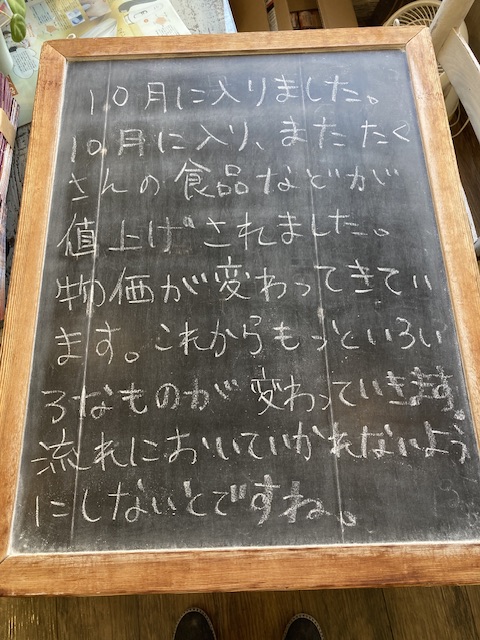 10月に入りました。
10月に入り、またたく
さんの食品などが
値上げされました。
物価が変わってきてい
ます。これからもっといろい
ろなものが変わっていきます。
流れにおいていかれないよう
にしないとですね。